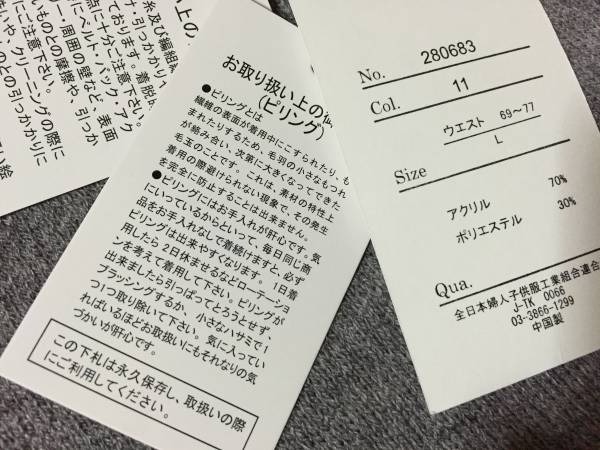 糸及び編組織
ナ・引っかかりや
ております。着脱の
点に十分ご注意下さい
にベルト・バック・アク
ー・周囲の壁など、表面
いものとの摩擦や、引っか
にご注意下さい。
い や、クリーニングの際に
のとの引っかかりに
お取り扱い上の
(ピリング)
●ピリングとは
繊維の表面が着用中にこすられたり、も
まれたりするため、毛羽の小さなもつれ
が絡み合い、次第に大きくなってできた
毛玉のことです。これは、素材の特性上
着用の際避けられない現象で、その発生
を完全に防止することは出来ません。
●ピリングにはお手入れが肝心です。気
にいっているからといって、毎日同じ商
品をお手入れなしで着続けますと、必ず
ピリングは出来やすくなります。1日着
用したら2日休ませるなどローテーショ
ンを考えて着用して下さい。ピリングが
出来ましたら引っぱってとろうとせず、
ブラッシングするか、小さなハサミで1
つ1つ取り除いて下さい。気に入ってい
ればいるほどお取扱いにもそれなりの気
づかいが肝心です。
この下札は永久保存し、取扱いの際
にご利用してください。
No. 280683
Col. 11
ウエスト 69〜77
Size L
アクリル 70%
ポリエステル 30%
Qua.
全日本婦人子供服工業組合連合
J-TK 0066
03-3866-1299
中国製